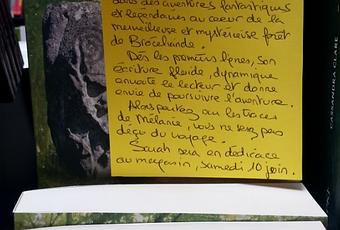 dans des aventures fantastiques
et légendaires au cœur de la
merveilleuse et mystérieuse forêt
de Brocéliande.
Dès les premières lignes, son
écriture fluide, dynamique
envoûte le lecteur et donne
envie de poursuivre l'aventure.
Alors partez sur les traces
de Mélanie, vous ne serez pas
déçu du voyage.
Sarah sera en dédicace
au magasin, samedi 10 juin.
CASSANDRA CLARE